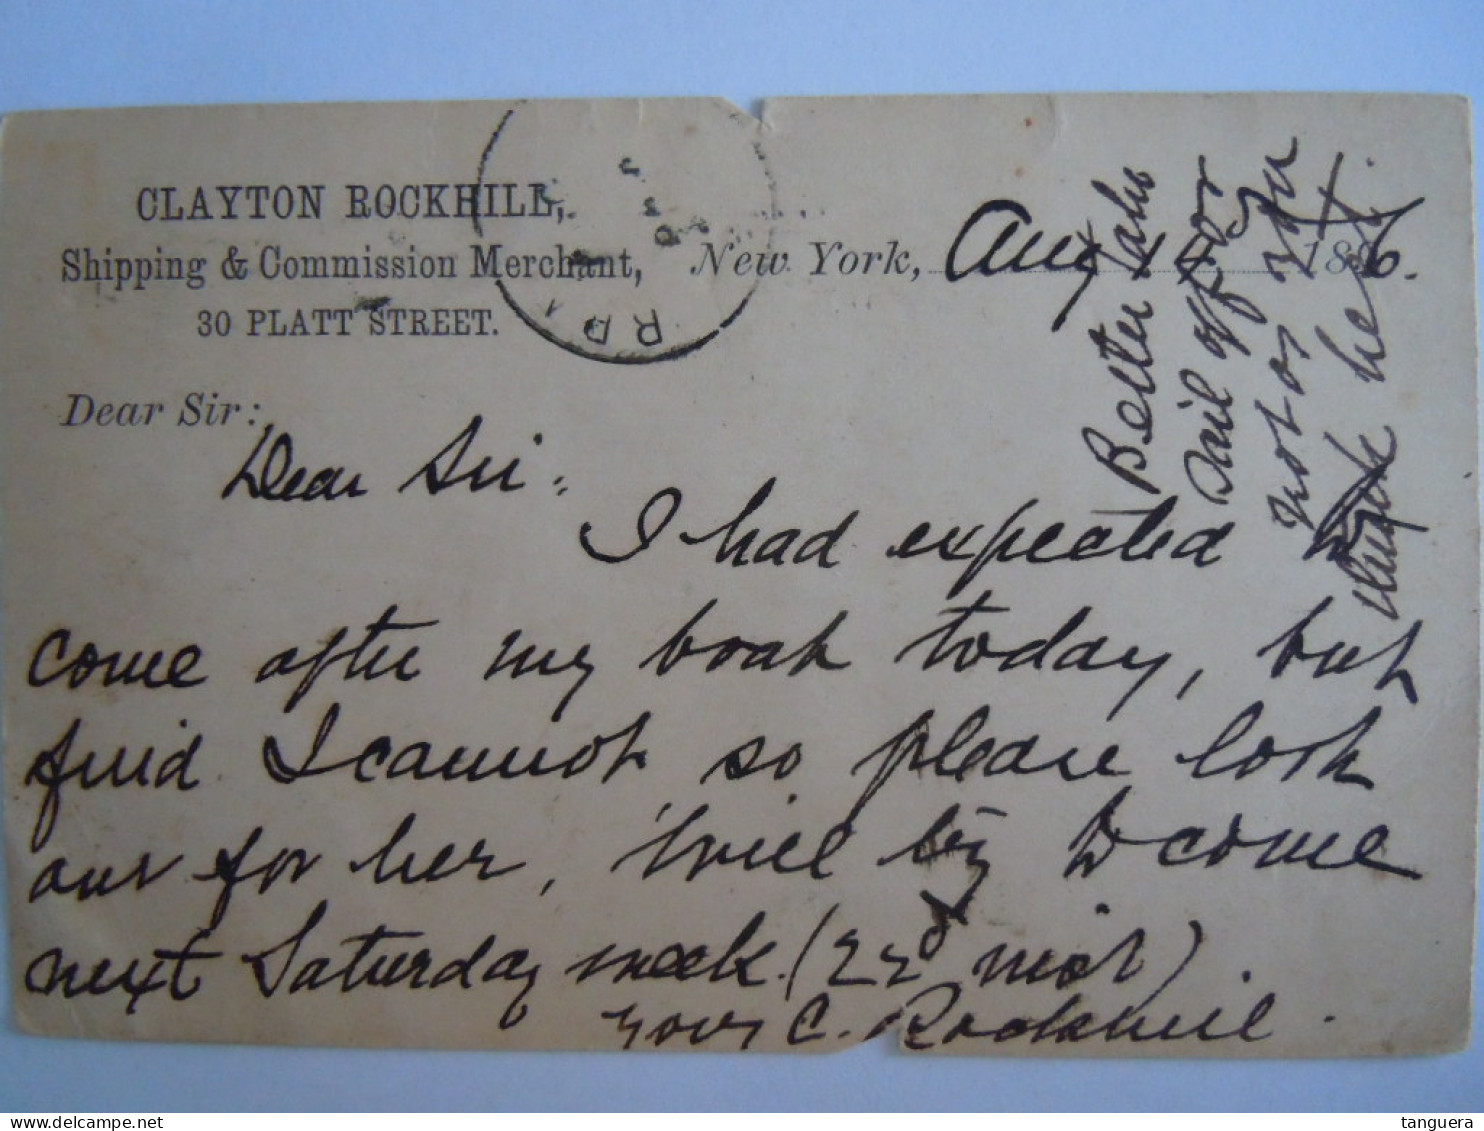 CLAYTON ROCKHILL,
Shipping & Commission Merchant,
30 PLATT STREET.
New York, Aug 14 1886.
Dear Sir:
Dear Sir:
I had expected to
come after my boat today, but
find I cannot so please look
out for her, will try to come
next Saturday week (22d inst)
Yours C. Rockhill.
Better take
Sail off or
not as you
think best
tanguera